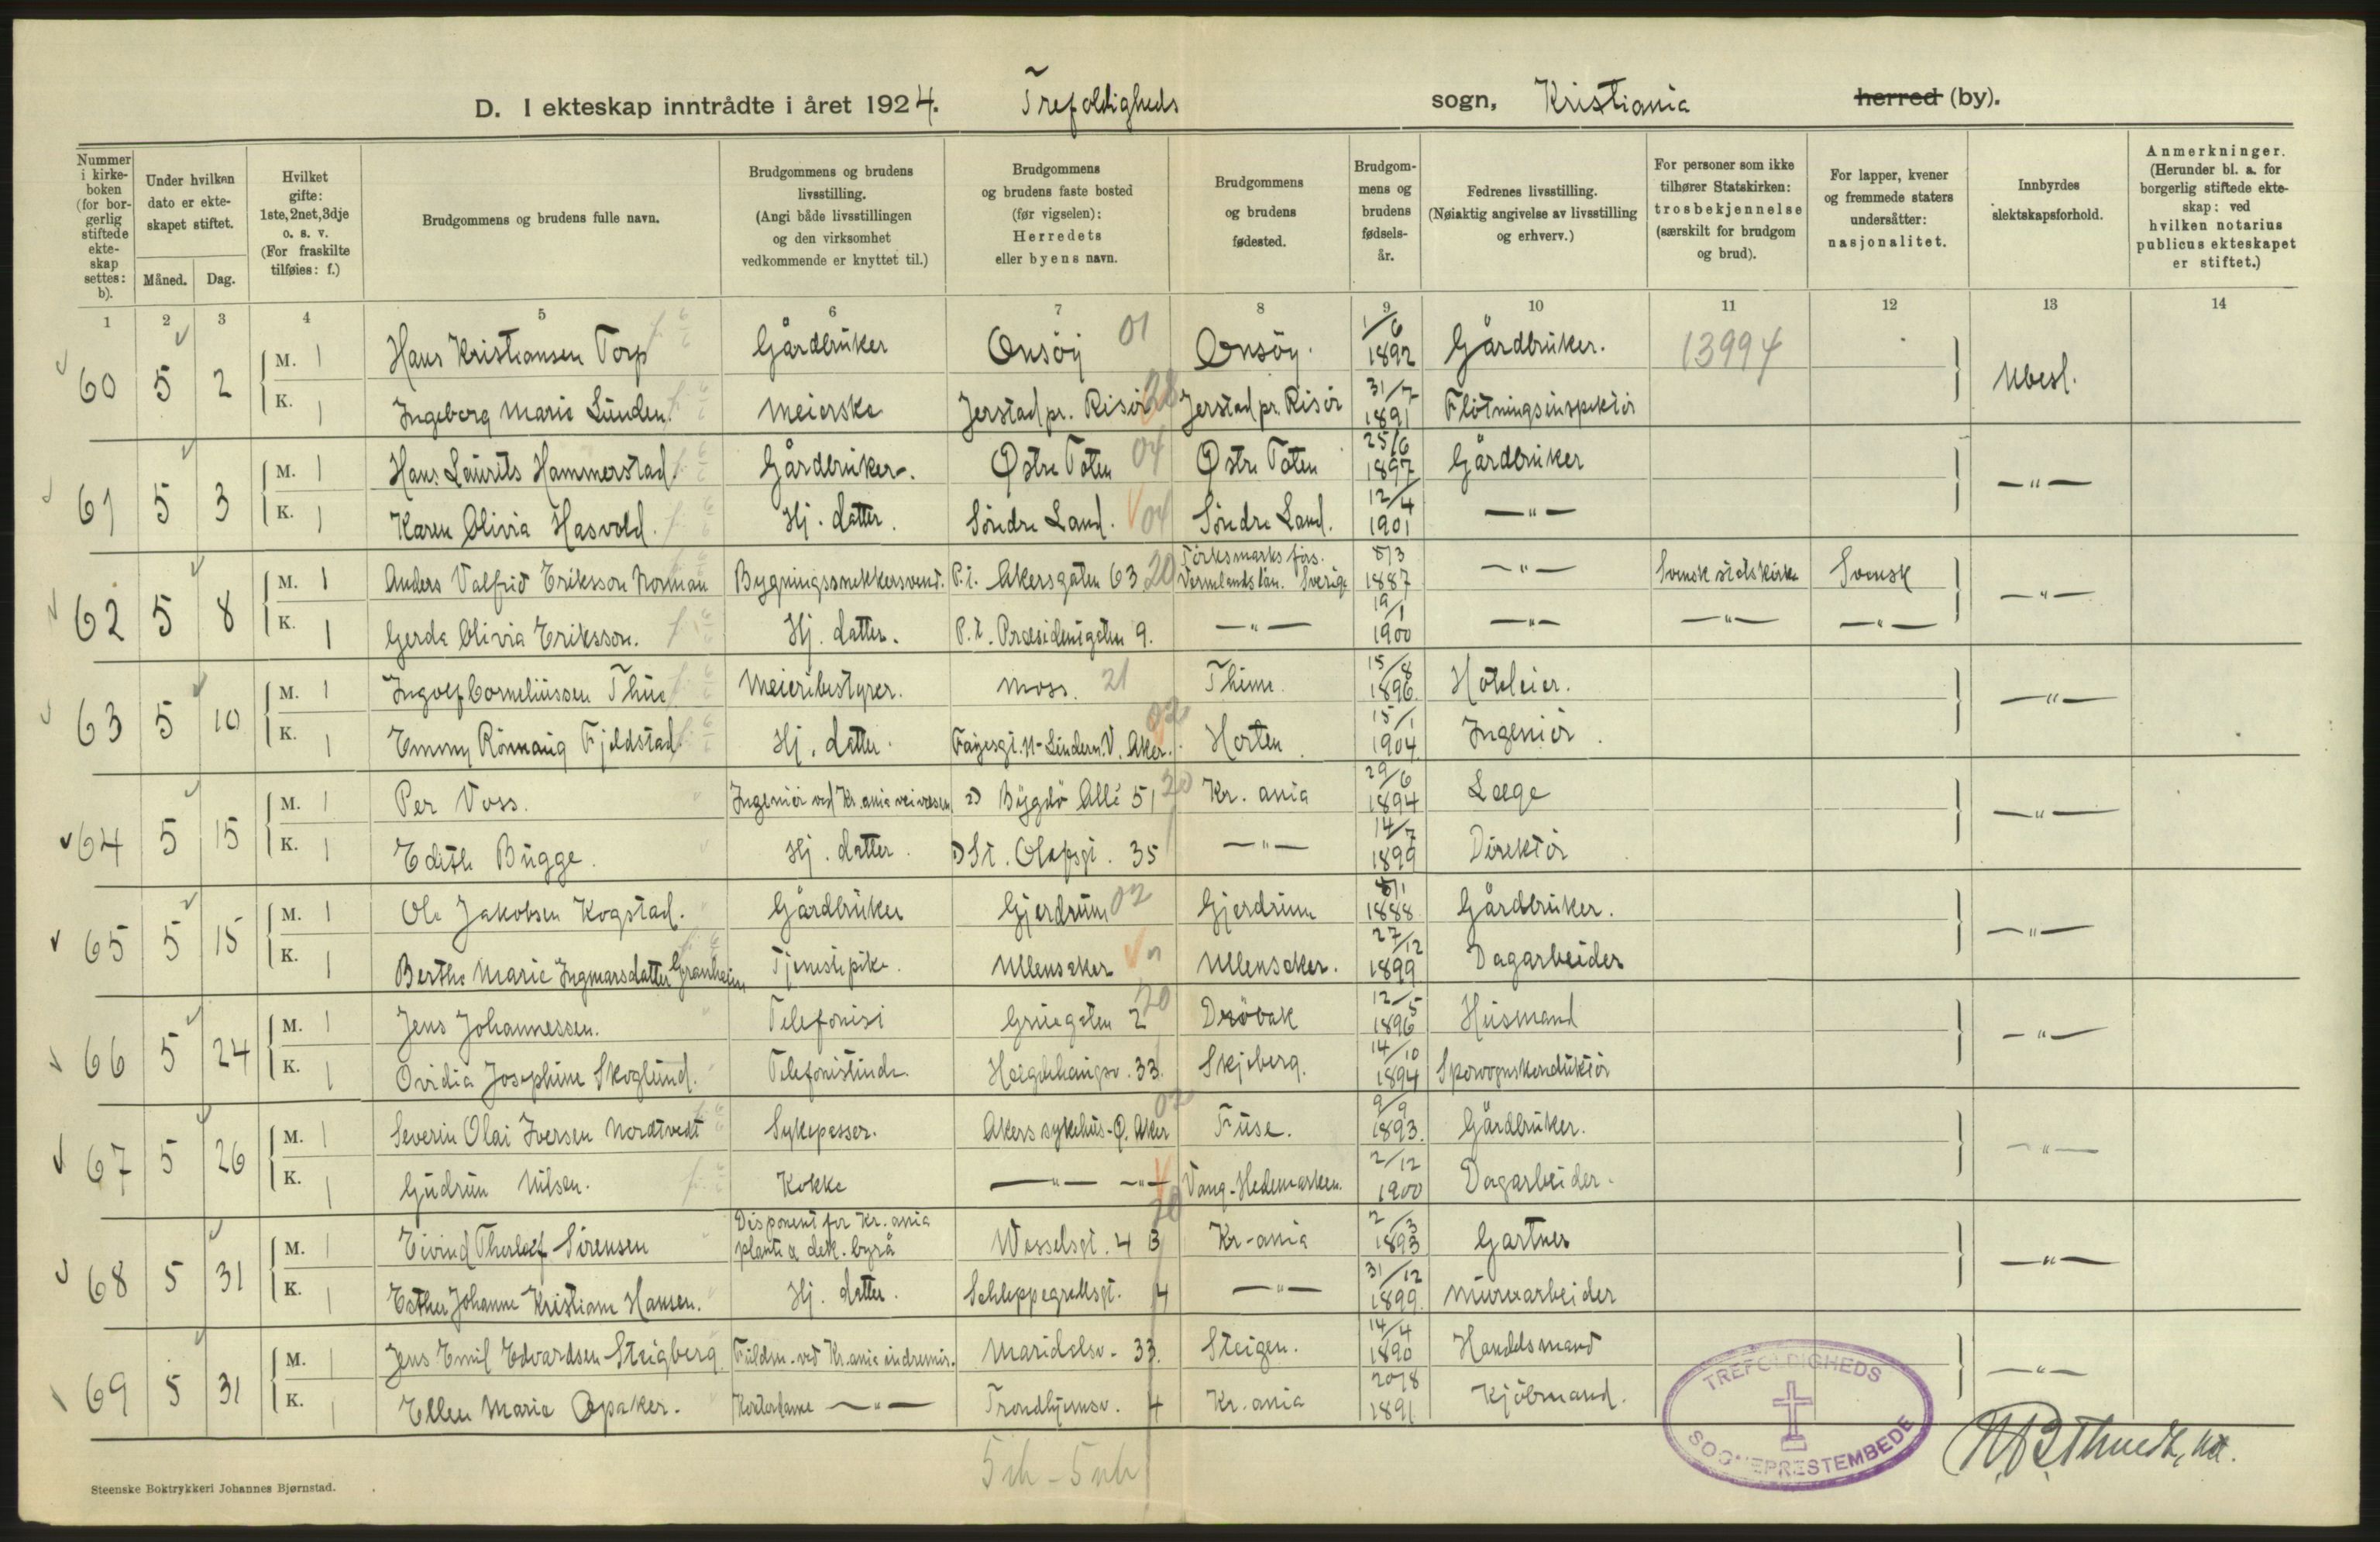 D. I ekteskap inntrådte i året 1924. Trefoldigheds sogn, Kristiania herred (by).
Nummer i kirkeboken (for borgerlig stiftede ekteskap settes: b).
Under hvilken dato er ekteskapet stiftet.
Måned. Dag.
Hvilket gifte: 1ste, 2net, 3dje o. s. v. (For fraskilte tilføies: f.)
Brudgommens og brudens fulle navn.
Brudgommens og brudens livsstilling. (Angi både livsstillingen og den virksomhet vedkommende er knyttet til.)
Brudgommens og brudens faste bosted (før vigselen): Herredets eller byens navn.
Brudgommens og brudens fødested.
Brudgommens og brudens fødselsår.
Fedrenes livsstilling. (Nøiaktig angivelse av livsstilling og erhverv.)
For personer som ikke tilhører Statskirken: trosbekjennelse (særskilt for brudgom og brud).
For lapper, kvener og fremmede staters undersåtter: nasjonalitet.
Innbyrdes slektskapsforhold.
Anmerkninger. (Herunder bl. a. for borgerlig stiftede ekteskap: ved hvilken notarius publicus ekteskapet er stiftet.)
1 2 3 4 5 6 7 8 9 10 11 12 13 14
60 5 2 M. 1 Hans Kristiansen Torp Gårdbruker Onsöy 01 Onsöy. 1/6 1892 Gårdbruker. 13994 Ubesl.
K. 1 Ingeborg Marie Lunden. Meierske Jerstad pr. Risör 28 Jerstad pr. Risör 31/7 1891 Flötningsinspektör
61 5 3 M. 1 Hans Laurits Hammerstad. Gårdbruker. Østre Toten 04 Østre Toten 25/6 1897 Gårdbruker —"—
K. 1 Karen Olivia Hasvold. Hj. datter. Söndre Land. 04 Söndre Land. 12/4 1901 —"—
62 5 8 M. 1 Anders Valfrid Eriksson Norman Bygningssnekkersvend. P.t. Akersgaten 63. 20 Törksmarks förs. Vermlands län. Sverige 5/3 1887 —"— Svensk statskirke Svensk —"—
K. 1 Gerda Olivia Eriksson. Hj. datter. P.t. Præsidentgaten 9. —"— 19/1 1900 —"— —"— —"—
63 5 10 M. 1 Ingolf Corneliussen Thue Meieribestyrer. Moss. 21 Thime 15/8 1896. Hoteleier. —"—
K. 1 Emmy Rönnaug Fjeldstad. Hj. datter. Fayesgt. 11 - Lindern. V. Aker. 02 Horten. 15/1 1904 Ingeniör.
64 5 15 M. 1 Per Voss. Ingeniör ved Kr.ania veivæsen Bygdö Allé 51 20 Kr. ania 29/6 1894 Læge —"—
K. 1 Edith Bugge. Hj. datter. St. Olafsgt. 35 —"— 14/7 1899 Direktör
65 5 15 M. 1 Ole Jakobsen Kogstad. Gårdbruker Gjerdrum 02 Gjerdrum 8/1 1888 Gårdbruker. —"—
K. 1 Berthe Marie Ingmarsdatter Granheim Tjenestepike. Ullensaker Ullensaker. 27/12 1899 Dagarbeider
66 5 24 M. 1 Jens Johannessen. Telefonist Gruegaten 2 20 Dröbak 12/5 1896 Husmand —"—
K. 1 Ovidia Josephine Skoglund. Telefonistinde Hegdehaugsv. 33. Skjeberg. 14/10 1894 Sporvognskonduktör
67 5 26 M. 1 Severin Olai Iversen Nordtvedt Sykepasser. Akers sykehus - Ø. Aker 02 Fuse. 9/9 1893. Gårdbruker. —"—
K. 1 Gudrun Nilsen. Kokke —"— —"— Vang - Hedemarken. 2/12 1900 Dagarbeider.
68 5 31 M. 1 Eivind Thorleif Sörensen Disponent for Kr. ania plante & dek. byrå Wesselsgt. 4 B 20 Kr-ania 2/3 1893 Gartner —"—
K. 1 Esther Johanne Kristiane Hansen. Hj. datter. Schleppegrellsgt. 4 —"— 31/12 1899. Murarbeider
69 5 31 M. 1 Jens Emil Edvardsen Steigberg Fuldm. ved Kr.ania indremis. Maridalsv. 33. Steigen. 14/4 1890 Handelsmand —"—
K. 1 Ellen Marie Opaker. Kontordame —"— Trondhjemsv. 4 Kr. ania 20/8 1891 Kjöbmand.
TREFOLDIGHEDS SOGNEPRESTEMBEDE
Steenske Boktrykkeri Johannes Bjørnstad.